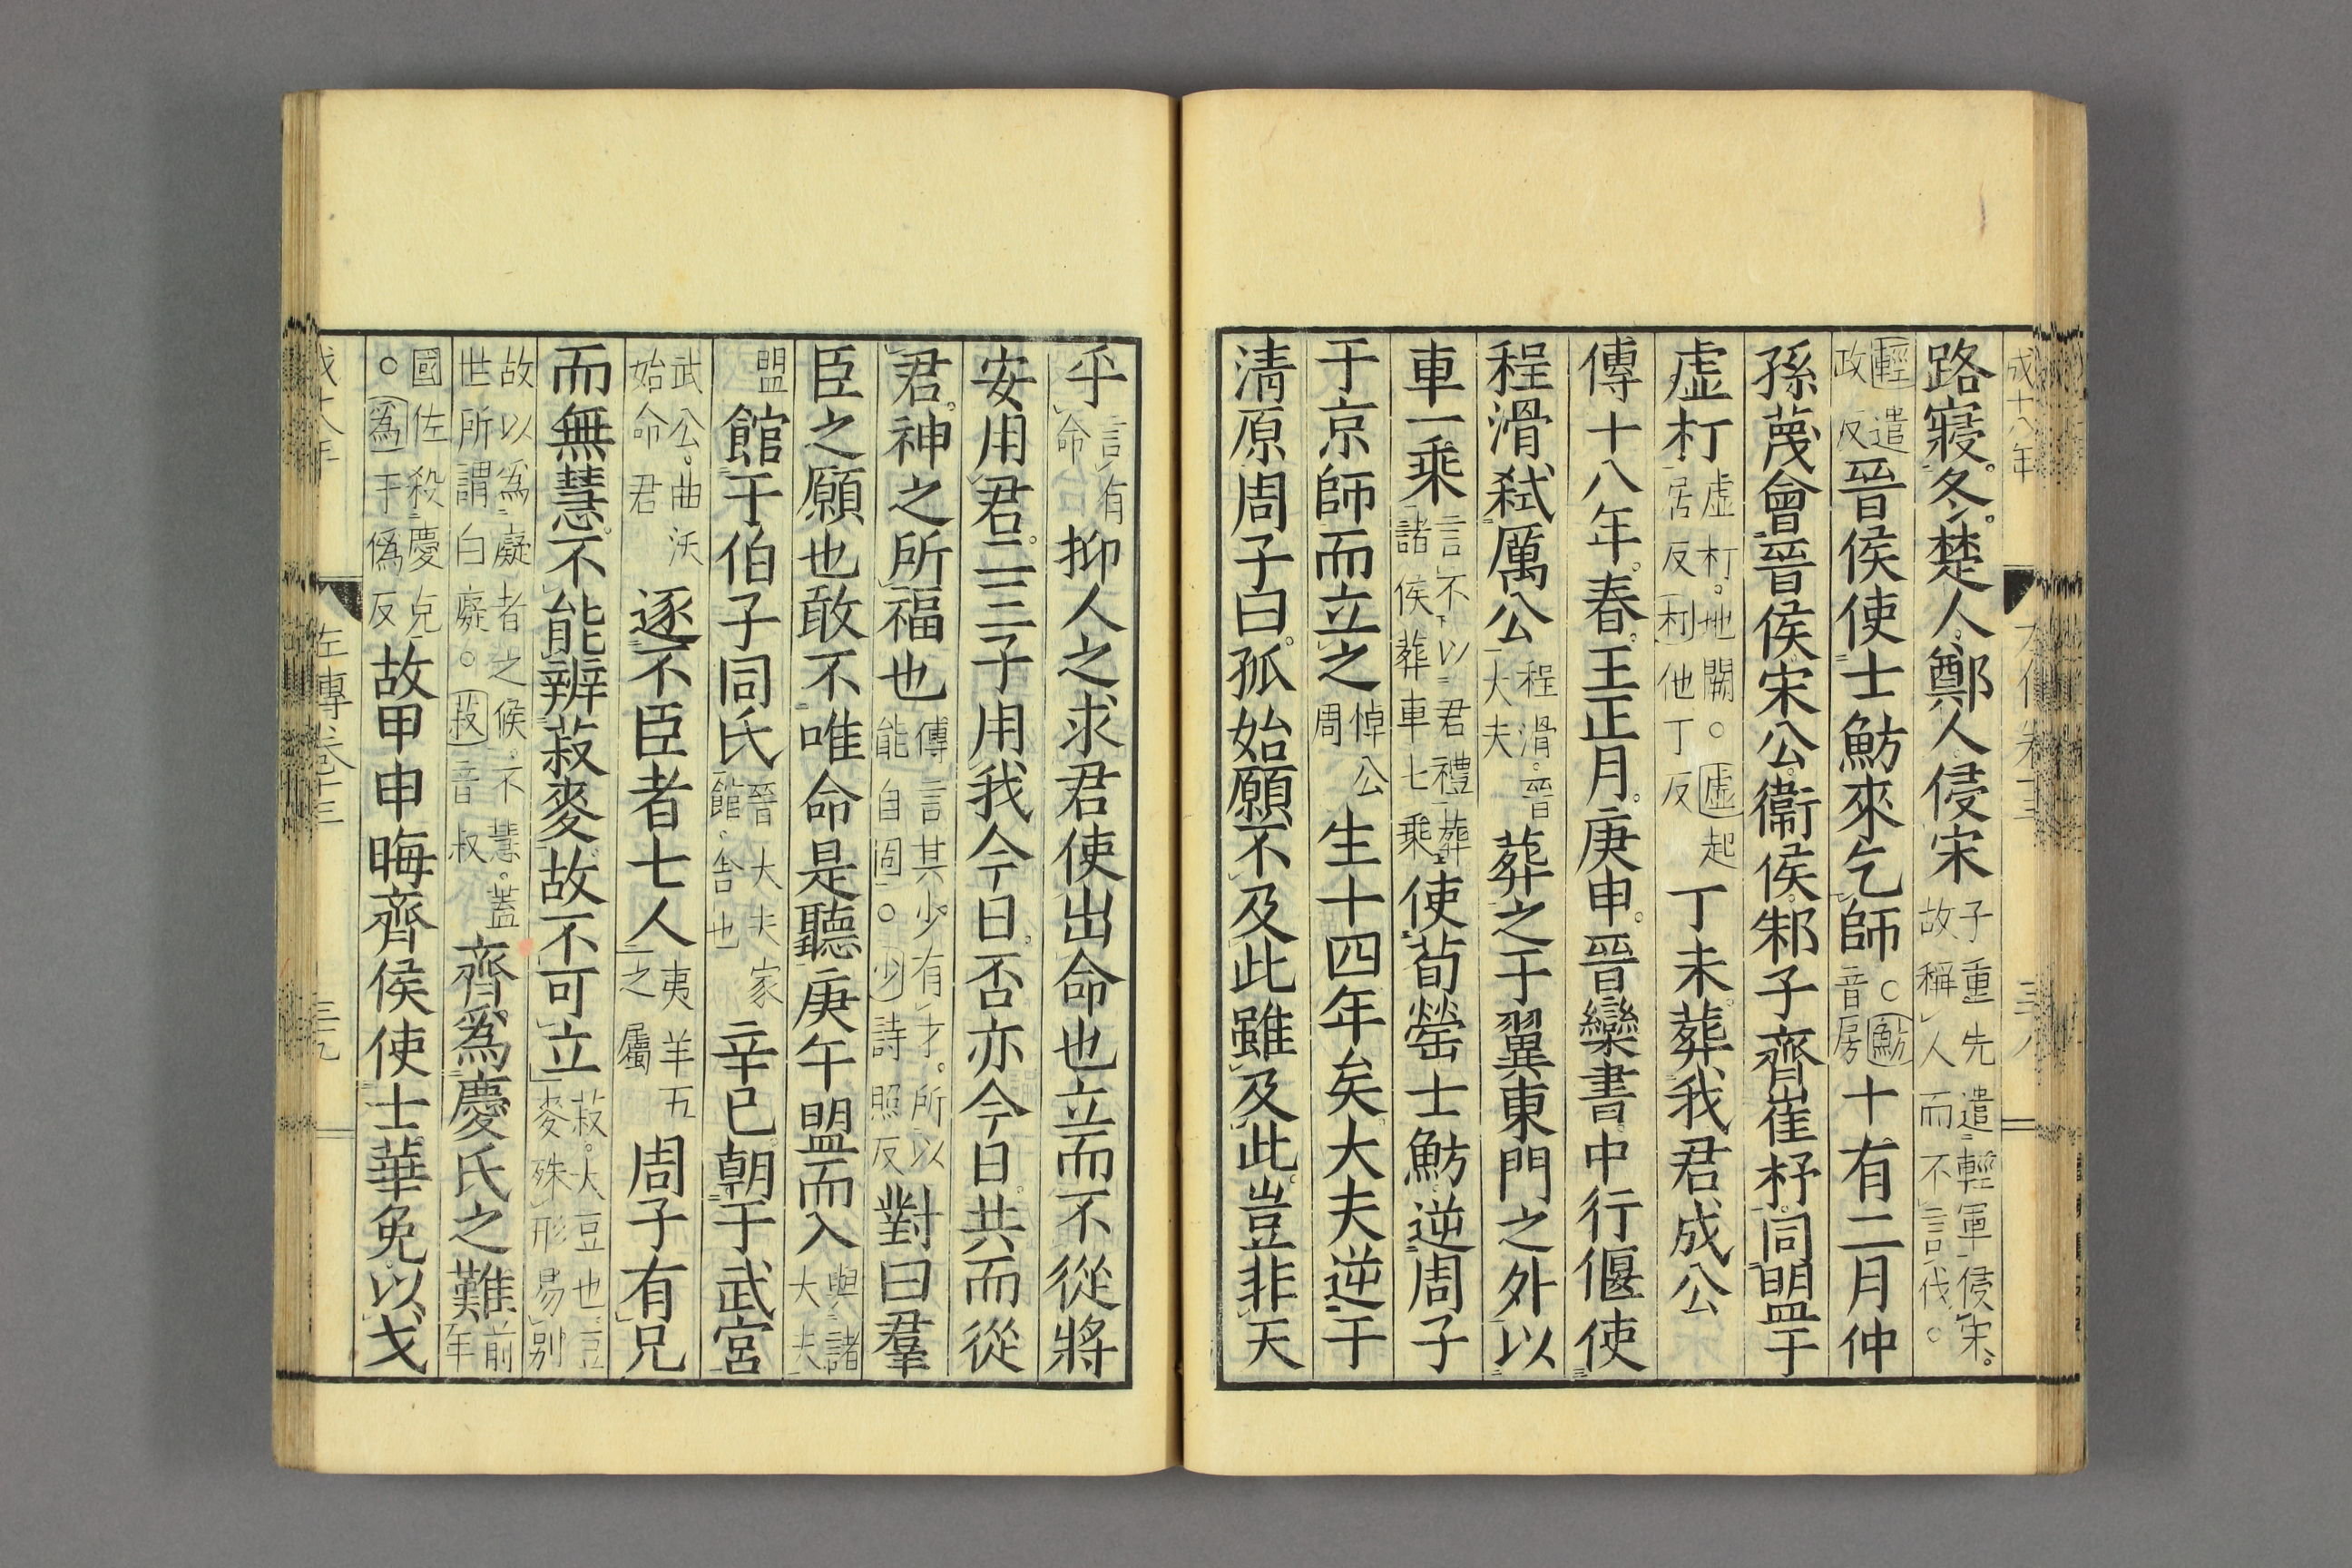 成十八年
路寢冬楚人鄭人侵宋子重先遣輕軍侵宋故稱人而不言伐○
輕遣政反晉侯使士魴來乞師○魴音房十有二月仲
孫蔑會晉侯宋公衞侯邾子齊崔杼同盟于
虛朾虛朾地闕○虛起居反朾他丁反丁未葬我君成公
傳十八年春王正月庚申晉欒書中行偃使
程滑弒厲公程滑晉大夫葬之于翼東門之外以
車一乘言不以君禮葬諸侯葬車七乘使荀罃士魴逆周子
于京師而立之悼公周生十四年矣大夫逆于
清原周子曰孤始願不及此雖及此豈非天
乎言有命抑人之求君使出命也立而不從將
安用君二三子用我今日否亦今日共而從
君神之所福也傳言其少有才所以能自固○少詩照反對曰羣
臣之願也敢不唯命是聽庚午盟而入與諸大夫
盟館于伯子同氏晉大夫家館舍也辛巳朝于武宮
武公曲沃始命君逐不臣者七人夷羊五之屬周子有兄
而無慧不能辨菽麥故不可立菽大豆也豆麥殊形易別
故以爲癡者之候不慧蓋世所謂白癡○菽音叔齊爲慶氏之難前年
國佐殺慶克○爲于僞反故甲申晦齊侯使士華免以戈
左傳卷十三
三九